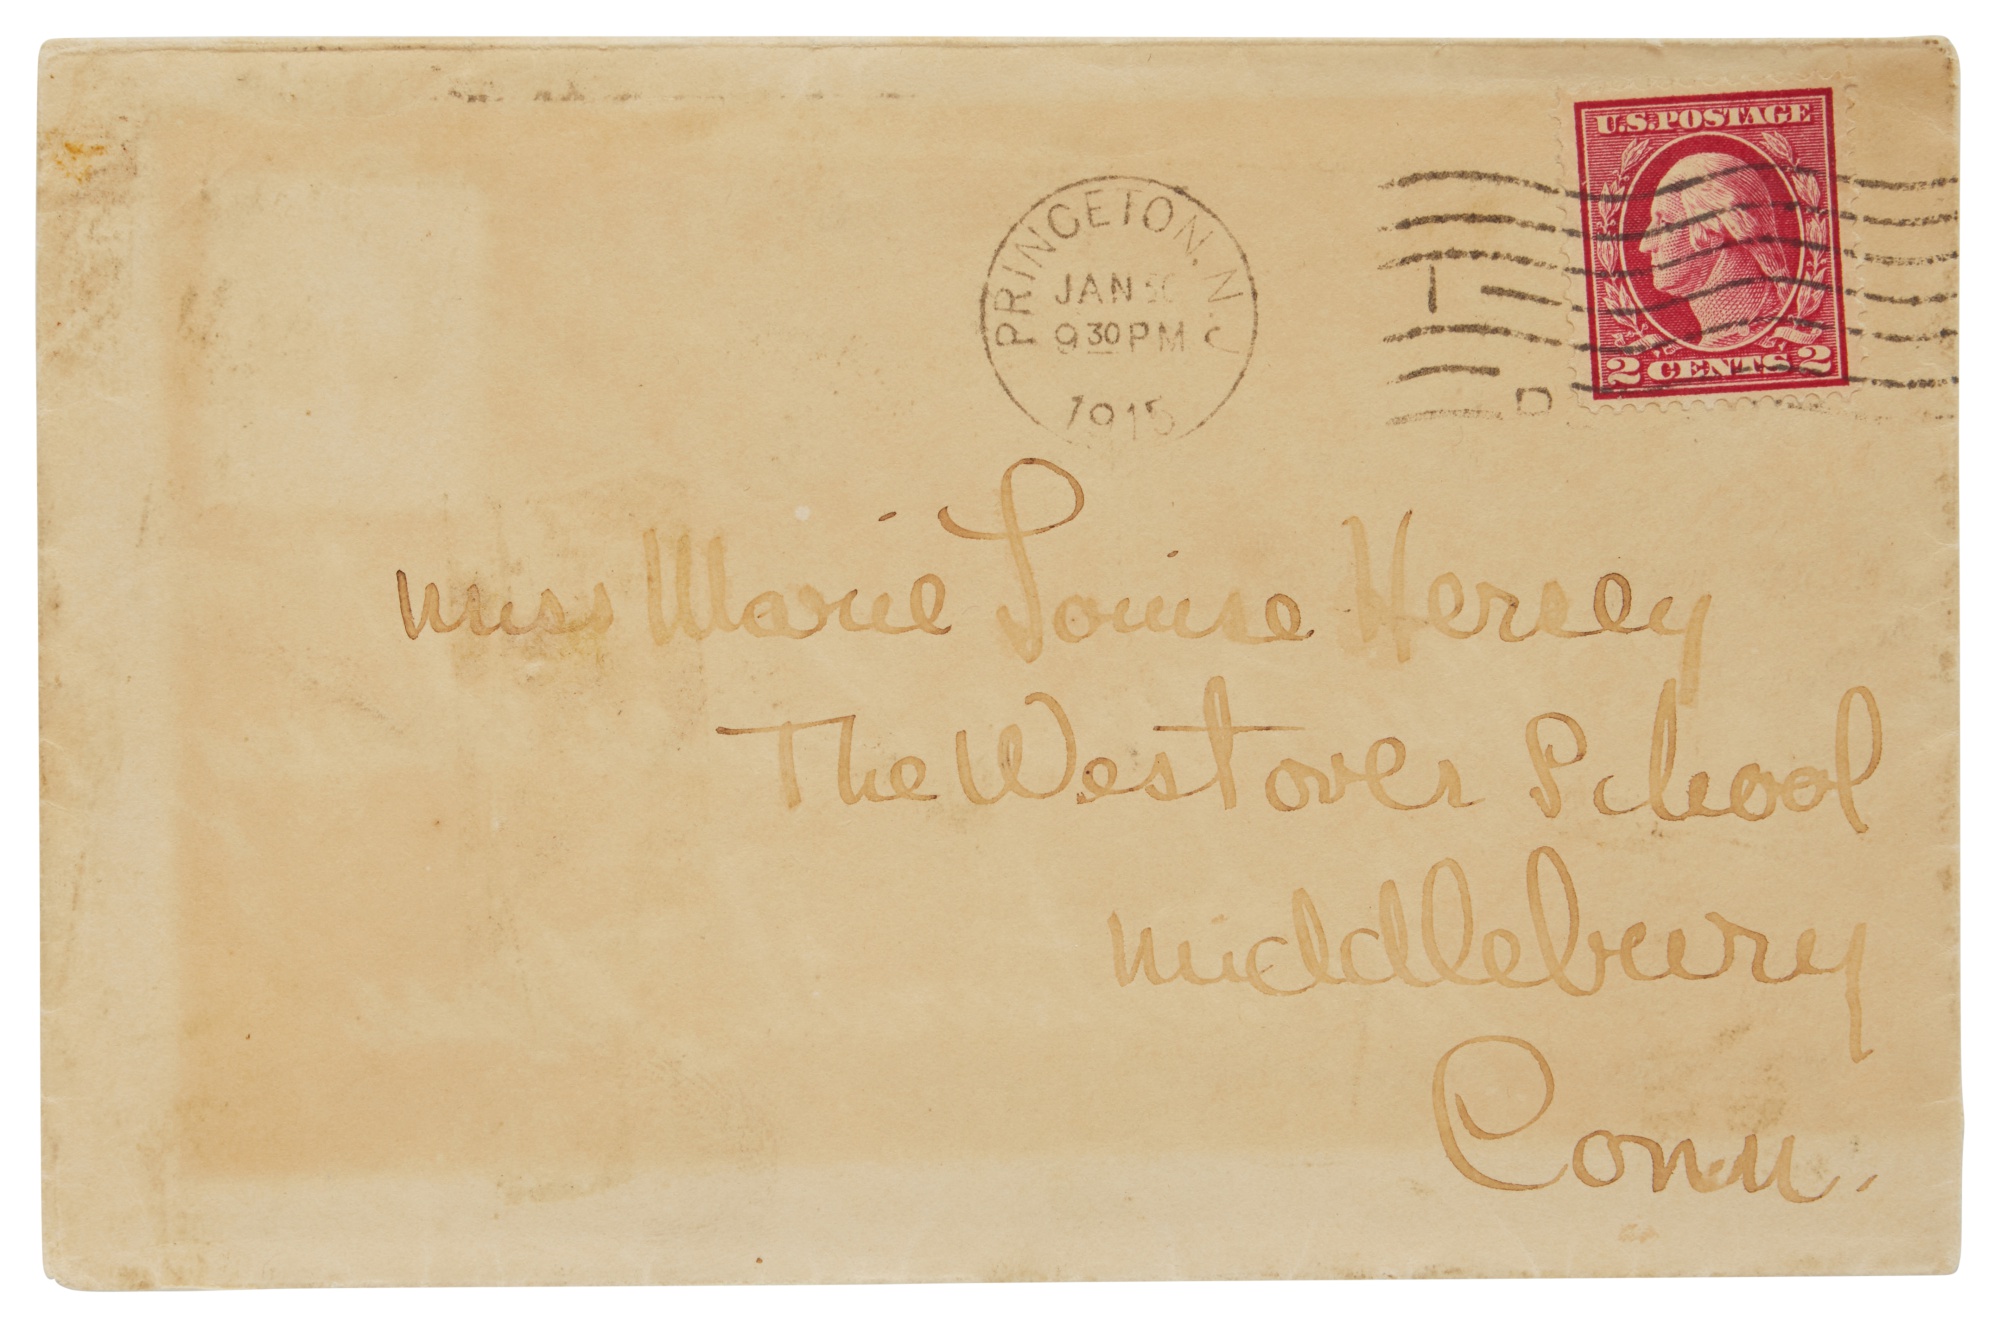 U.S. POSTAGE
PRINCETON, N.J.
JAN 30
9 30 PM
1915
2 CENTS 2
Miss Marie Louise Hersey
The Westover School
Middlebury
Conn.